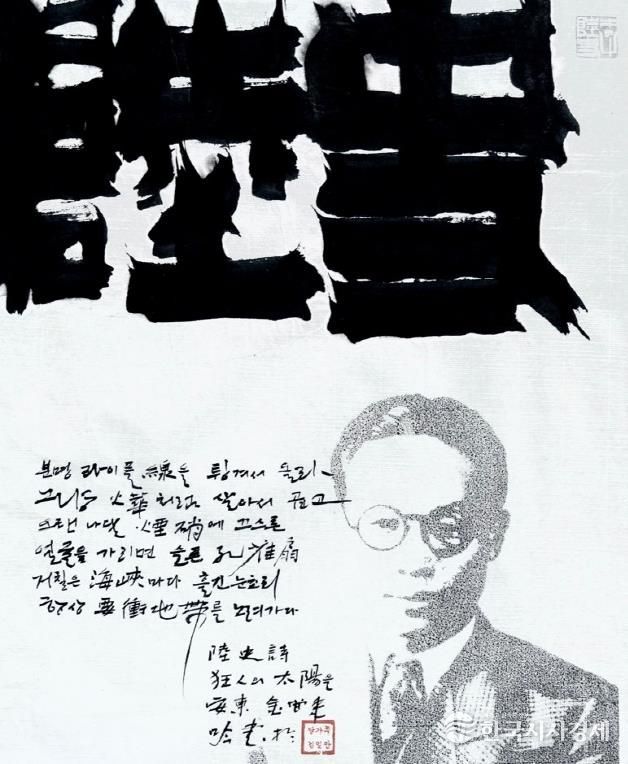 분명 라이플 線을 튕겨서 올라
그냥 火華처럼 살아서 곱고
오랜 나달 煙硝에 끄스른
얼굴을 가리면 슬픈 孔雀扇
거칠은 海峽마다 흘긴 눈초리
항상 要衝地帶를 노려가다
陸史 詩
狂人의 太陽을
安東 金
한국시사경제